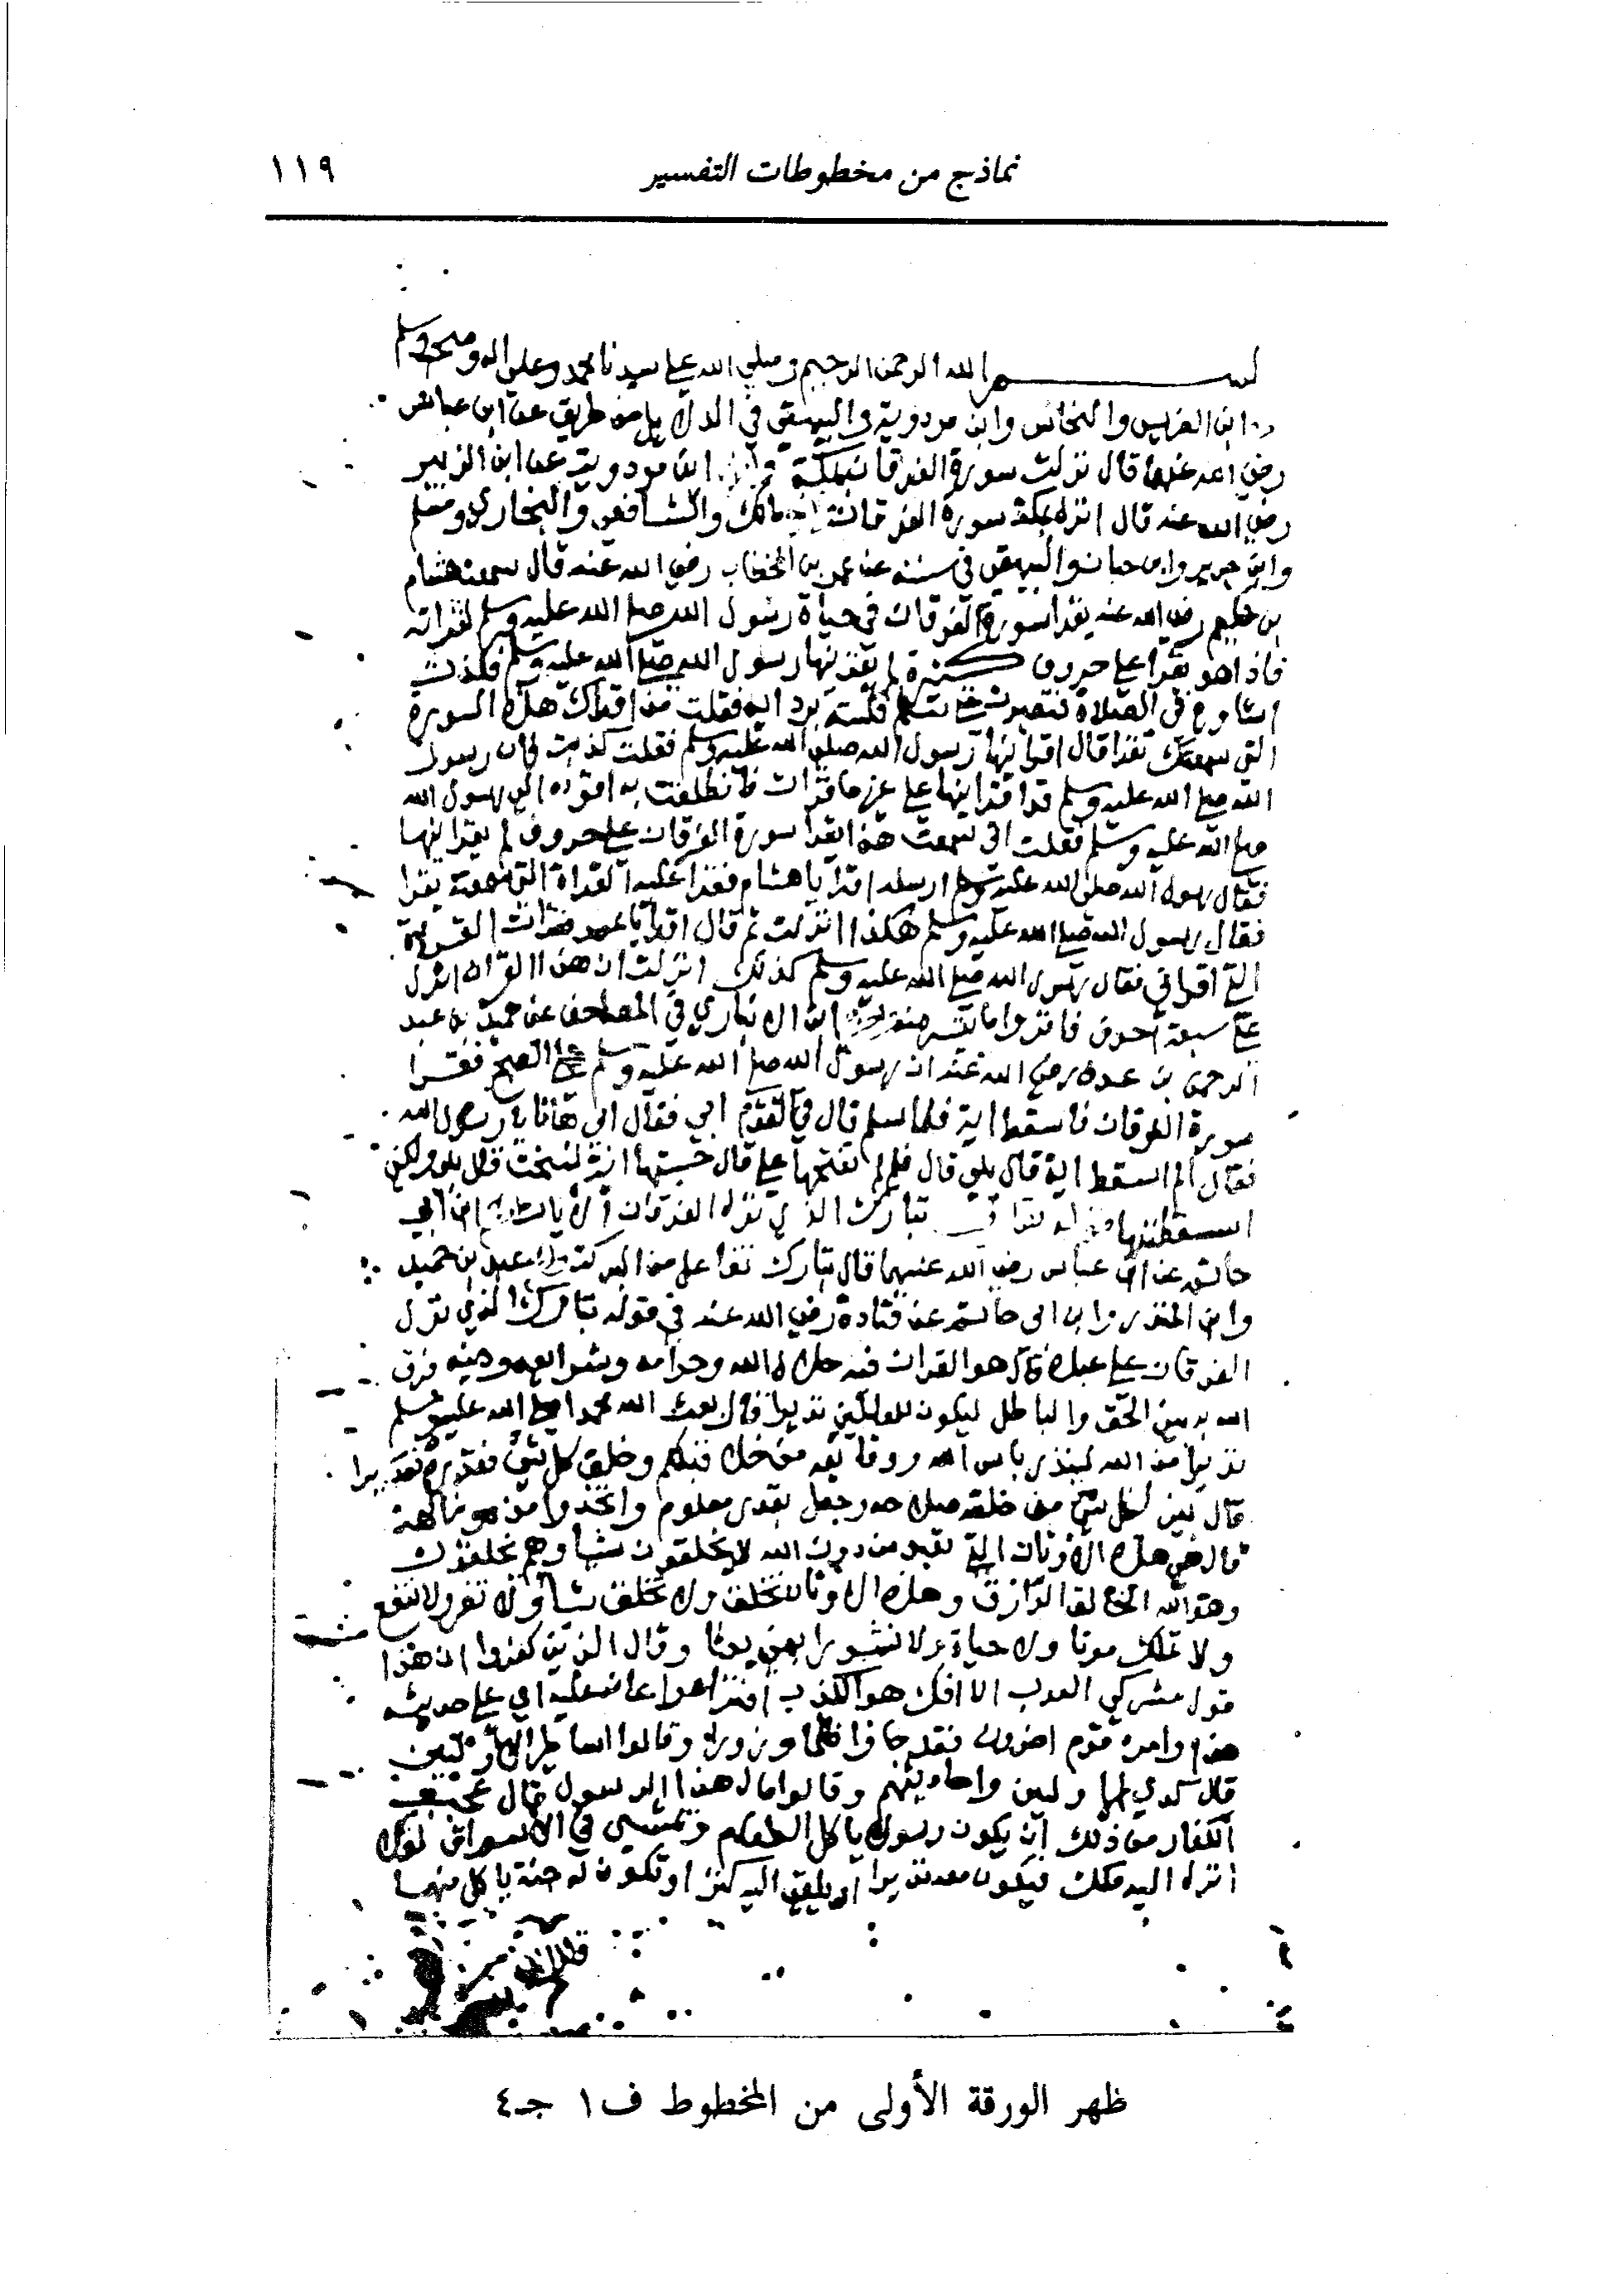 نماذج من مخطوطات التفسير ١١٩
بسم الله الرحمن الرحيم وصلي الله على سيدنا محمد وعلى اله وصحبه وسلم
ابن الضريس والنحاس وابن مردوية والبيهقي في الدلايل من طريق عن ابن عباس
رضي الله عنهما قال نزلت سورة الفرقان بمكة ابن مردويه عن ابن الزبير
رضي الله عنه قال انزل بمكة سورة الفرقان مالك والشافعي والبخاري ومسلم
وابن جرير وابن حبان والبيهقي في سننه عن عمر بن الخطاب رضي الله عنه قال سمعت هشام
بن حكيم رضي الله عنه يقرا سورة الفرقان في حياة رسول الله صلى الله عليه وسلم لقراته
فاذا هو يقرا على حروف كثيرة لم يقرئنيها رسول الله صلى الله عليه وسلم فكدت
اساوره في الصلاة فتصبرت حتى سلم فلببته بردايه فقلت من اقراك هذه السورة
التي سمعتك تقرا قال اقرانيها رسول الله صلى الله عليه وسلم فقلت كذبت فان رسول
الله صلى الله عليه وسلم قد اقرانيها على غير ما قرات فانطلقت به اقوده الى رسول الله
صلى الله عليه وسلم فقلت اني سمعت هذا يقرا سورة الفرقان على حروف لم يقرانيها
فقال رسول الله صلى الله عليه وسلم ارسله اقرا يا هشام فقرا عليه القراة التي سمعته يقرا
فقال رسول الله صلى الله عليه وسلم هكذا انزلت ثم قال اقرا يا عمر فقرات
التي اقراني فقال رسول الله صلى الله عليه وسلم كذلك انزلت ان هذا القران انزل
على سبعة احرف فاقروا ما تيسر منه ابن الانباري في المصاحف عن حميد بن عبد
الرحمن بن عوف رضي الله عنه ان رسول الله صلى الله عليه وسلم صلى الصبح فقرا
سورة الفرقان فاسقط اية فلما سلم قال في القوم ابي فقال ابي هانا يا رسول الله
فقال الم اسقط اية قال بلى قال فلم لم تفتحها علي قال حسبتها اية نسخت قال لا ولكني
اسقطتها تبارك الذي نزل الفرقان الايات ابن ابي
حاتم عن ابن عباس رضي الله عنهما قال تبارك تفاعل من البركة عبد بن حميد
وابن المنذر وابن ابي حاتم عن قتادة رضي الله عنه في قوله تبارك الذي نزل
الفرقان على عبده قال هو القران فيه حلال الله وحرامه وشرايعه ودينه فرق
الله به بين الحق والباطل ليكون للعالمين نذيرا قال بعث الله محمدا صلى الله عليه وسلم
نذيرا من الله لينذر باس الله ووقايعه من خلا قبلكم وخلق كل شي فقدره تقديرا
قال بين لكل شي من خلقه صلاحه وجعل بقدر معلوم واتخذوا من دونه الهة
قال هي هذه الاوثان التي تعبد من دون الله لا يخلقون شيا وهم يخلقون
وهو الله الخالق الرازق وهذه الاوثان تخلق ولا تخلق شيا ولا تضر ولا تنفع
ولا تملك موتا ولا حياة ولا نشورا يعني بعثا وقال الذين كفروا ان هذا
قول مشركي العرب الا افك هو الكذب افتراه واعانه عليه اي على حديثه
هذا وامره قوم اخرون فقد جاوا ظلما وزورا وقالوا اساطير الاولين
قال كذب الاولين واحاديثهم وقالوا مال هذا الرسول قال عجب
الكفار من ذلك ان يكون رسول ياكل الطعام ويمشي في الاسواق لولا
انزل اليه ملك فيكون معه نذيرا او يلقى اليه كنز او تكون له جنة ياكل منها
ظهر الورقة الأولى من المخطوط ف١ جـ٤